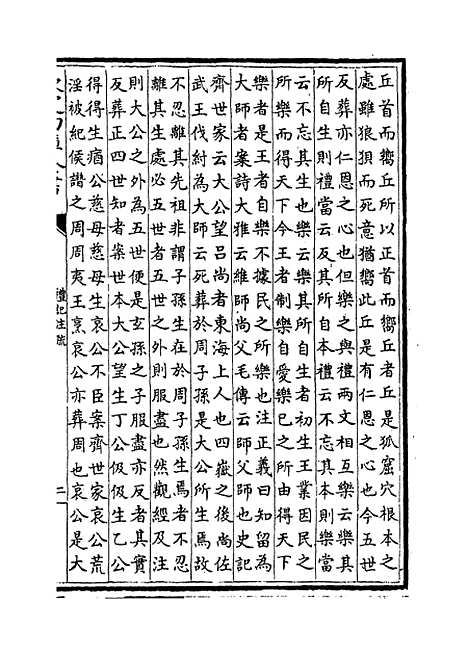 丘首而嚮丘所以正首而嚮丘者丘是狐窟穴根本之
處雖狼狽而死意猶嚮此丘是有仁恩之心也今五世
反葬亦仁恩之心也但樂之與禮兩文相互樂云樂其
所自生則禮當云反其所自本禮云不忘其本則樂當
云不忘其生也樂云樂其所自生者初生王業因民之
所樂而得天下今王者制樂自愛樂已之所由得天下
樂者是王者自樂不據民之所樂也注正義曰知留為
大師者案詩大雅云維師尚父毛傳云師父師也史記
齊世家云大公望吕尚者東海上人也四嶽之後尚佐
武王伐紂為大師云死葬於周子孫是大公所生焉故
不忍離其先祖非謂子孫生在於周子孫生焉者不忍
離其生處必五世者五世之外則服盡也然觀經及注
則大公之外為五世便是玄孫之子服盡亦反者其實
反葬正四世知者案世本大公望生丁公伋伋生乙公
得得生㾓公慈母慈母生哀公不臣案齊世家哀公荒
淫被紀侯譖之周周夷王烹哀公亦葬周也哀公是大
禮記注疏
二